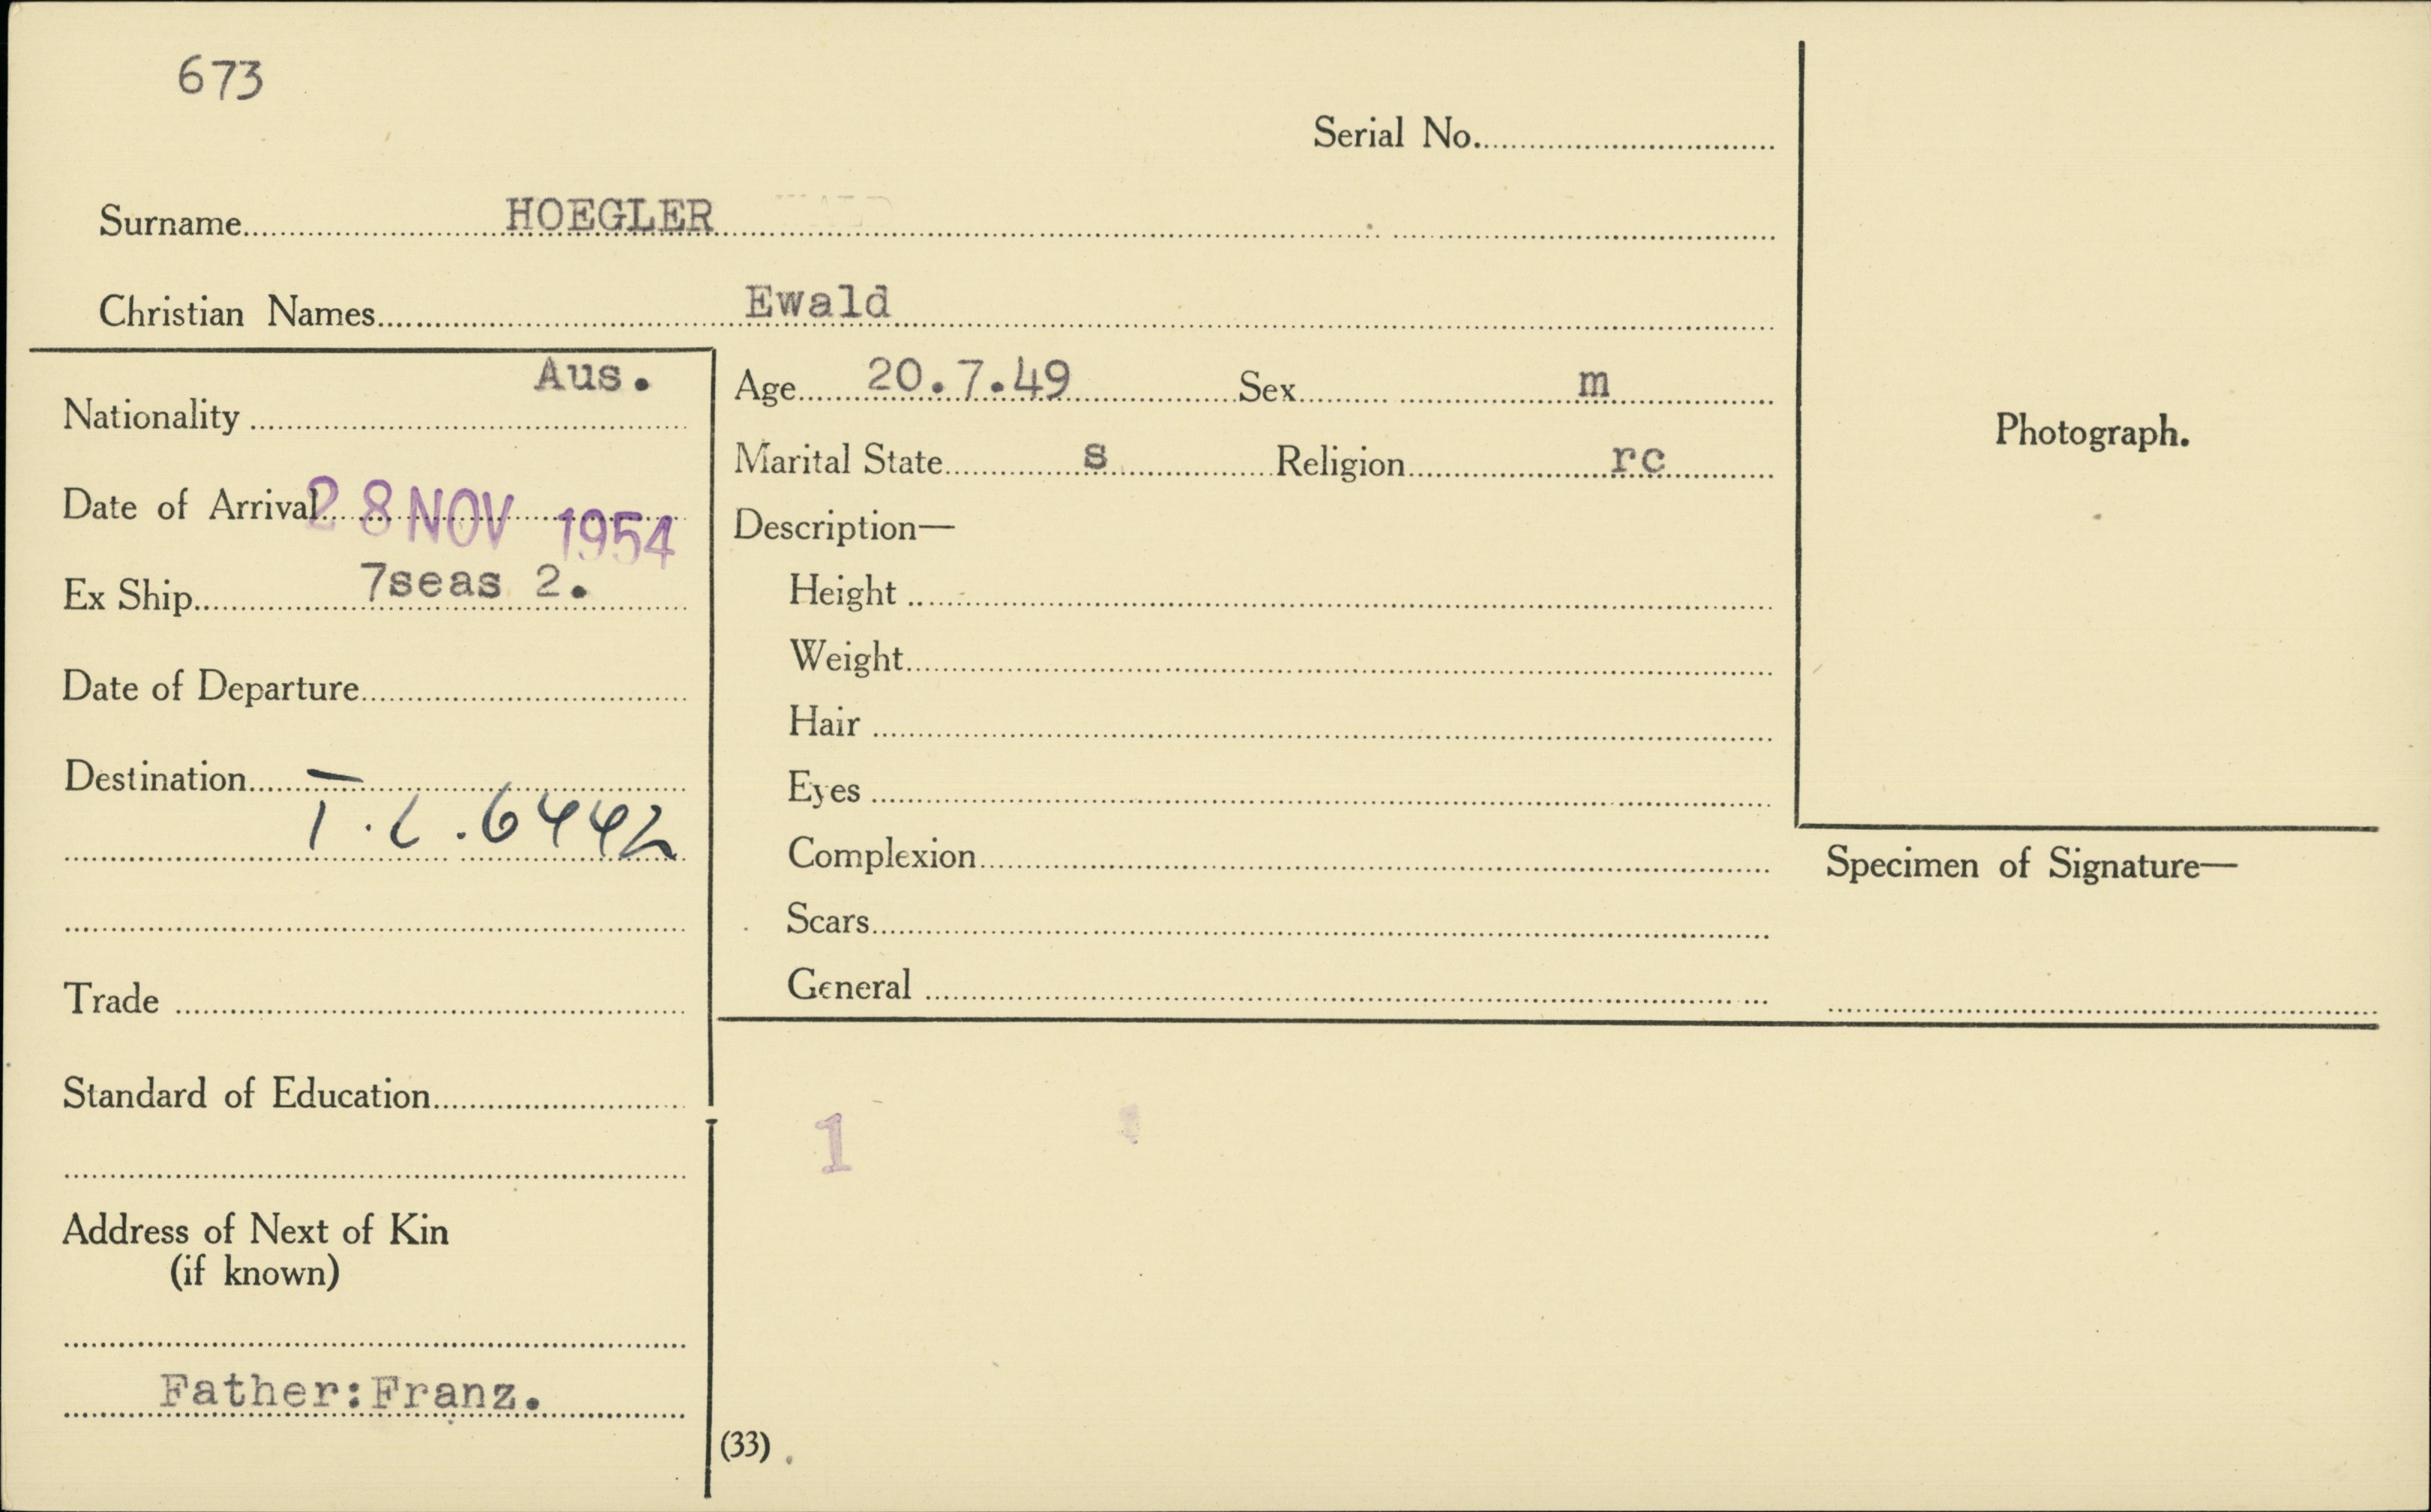 673
Serial No.
Surname HOEGLER
Christian Names Ewald
Nationality Aus.
Date of Arrival 28 NOV 1954
Ex Ship 7seas 2.
Date of Departure
Destination
T.L.6442
Trade
Standard of Education
Address of Next of Kin
(if known)
Father:Franz.
Age 20.7.49 Sex m
Marital State s Religion rc
Description—
Height
Weight
Hair
Eyes
Complexion
Scars
General
Photograph.
Specimen of Signature—
1
(33)